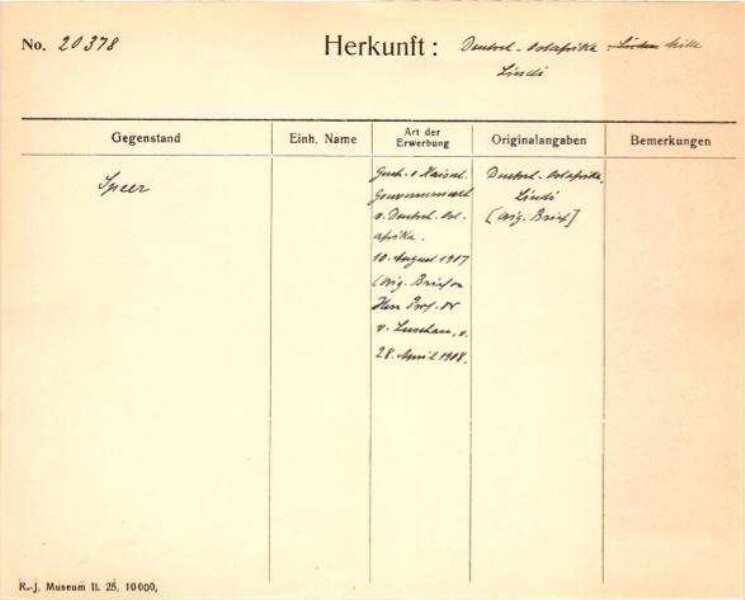 No. 20378 Herkunft: Deutsch-Ostafrika
Lindi
Gegenstand Einh. Name Art der Erwerbung Originalangaben Bemerkungen
Speer
Gesch. v Kaiserl.
Gouvernement
v. Deutsch. Ost-
afrika.
10. August 1907
(Orig. Brief an
Herr Prof. Dr
v. Luschan, v.
28. April 1908.
Deutsch. Ostafrika,
Lindi
[Orig. Brief]
R.-J. Museum II. 25, 10000,